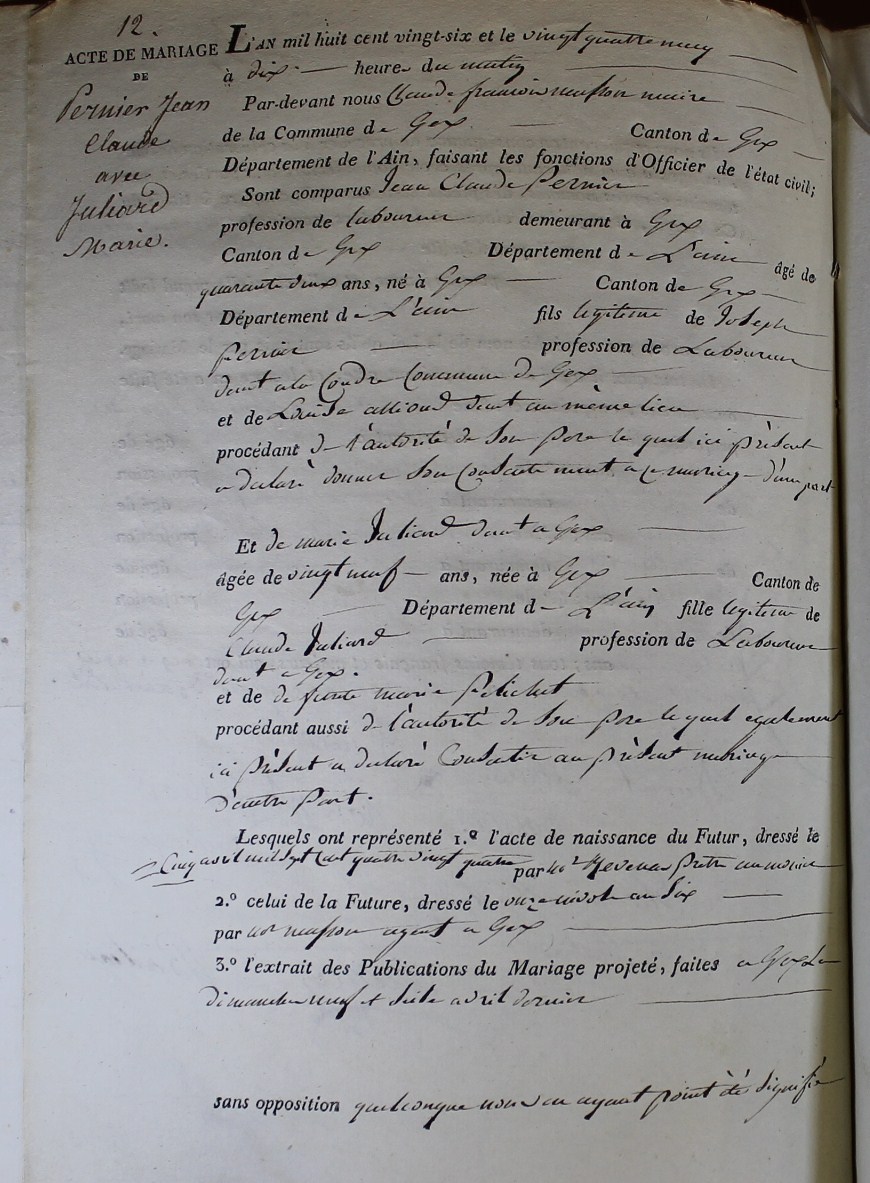 12.
ACTE DE MARIAGE
DE
Pernier Jean
Claude
avec
Juliard
Marie.
L'AN mil huit cent vingt-six et le vingt quatre may
à dix heures du matin
Par-devant nous Claude françois musson maire
de la Commune de Gex Canton de Gex
Département de l'Ain, faisant les fonctions d'Officier de l'état civil;
Sont comparus Jean Claude Pernier
profession de laboureur demeurant à Gex
Canton de Gex Département de L'ain âgé de
quarante deux ans, né à Gex Canton de Gex
Département de L'ain fils légitime de Joseph
Pernier profession de Laboureur
demt a la Coudre Commune de Gex
et de Louise alliod demt au même lieu
procédant de l'autorité de Son pere le quel ici présent
a declaré donner Son Consentement a ce mariage d'une part
Et de marie Juliard demt a Gex
âgée de vingt neuf ans, née à Gex Canton de
Gex Département de L'ain fille légitime de
Claude Juliard profession de Laboureur
demt a Gex.
et de defunte marie
procédant aussi de l'autorité de Son pere le quel egalement
ici présent a declaré Consentir au présent mariage
d'autre part.
Lesquels ont représenté 1.º l'acte de naissance du Futur, dressé le
Cinq avril mil sept cent quatre vingt quatre par
2.º celui de la Future, dressé le onze nivose an Six
par musson agent a Gex
3.º l'extrait des Publications du Mariage projeté, faites a Gex Le
dimanche neuf et Seize avril dernier
sans opposition quelconque nous en ayant point été Signifié